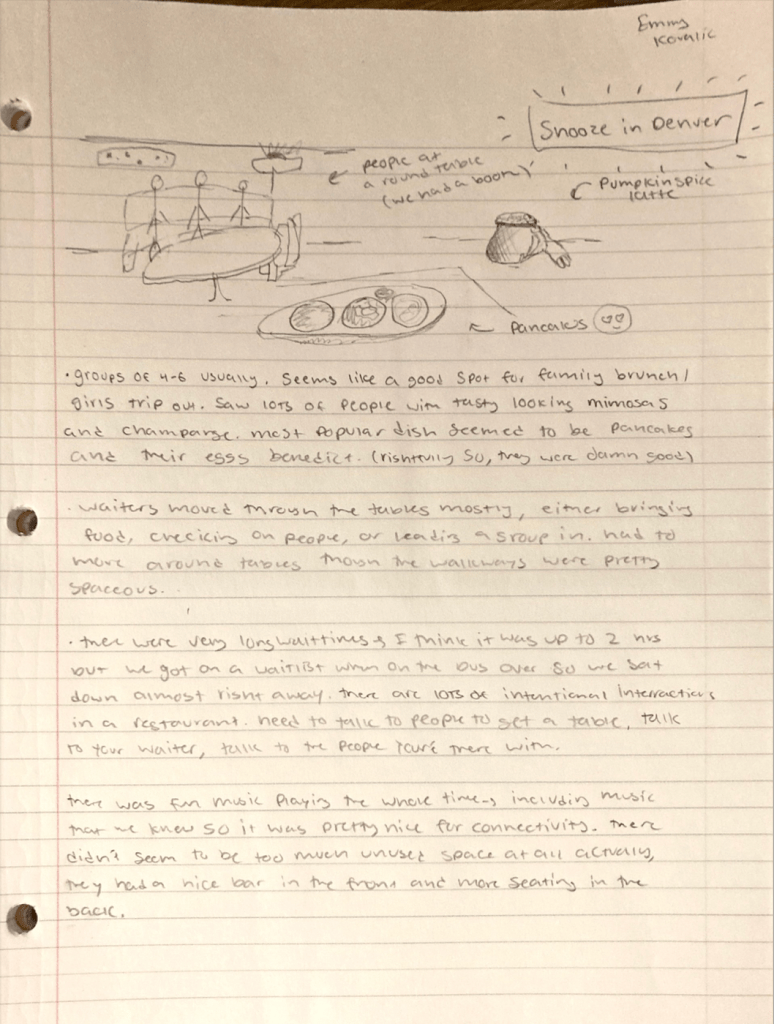 Emmy
Kovalic
Snooze in Denver
people at
a round table
(we had a booth)
Pumpkin spice
latte
Pancakes
• groups of 4-6 usually. Seems like a good spot for family brunch/
girls trip out. Saw lots of people with tasty looking mimosas
and champange. most popular dish seemed to be pancakes
and their eggs benedict. (rightfully so, they were damn good)
· waiters moved through the tables mostly, either bringing
food, checking on people, or leading a group in. had to
move around tables though the walkways were pretty
spaceous.
• there were very long wait times, I think it was up to 2 hrs
but we got on a waitlist when on the bus over so we sat
down almost right away. there are lots of intentional interractions
in a restaurant. need to talk to people to get a table, talk
to your waiter, talk to the people you're there with.
there was fun music playing the whole time, including music
that we knew so it was pretty nice for connectivity. there
didn't seem to be too much unused space at all actually,
they had a nice bar in the front and more seating in the
back.